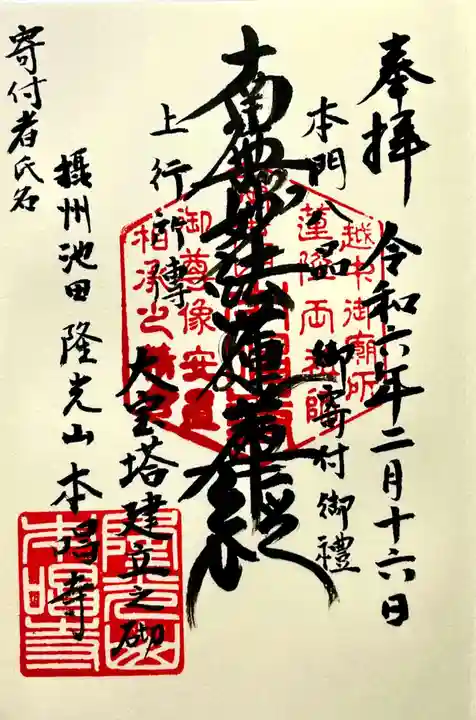 奉拝 令和六年二月十六日
本門八品 御寄付御禮
南無妙法蓮華経
上行所傳 大宝塔建立之砌
摂州池田 隆光山 本唱寺
寄付者氏名
越中御廟所
蓮隆両祖師
御尊像安置
隆光山
本唱寺